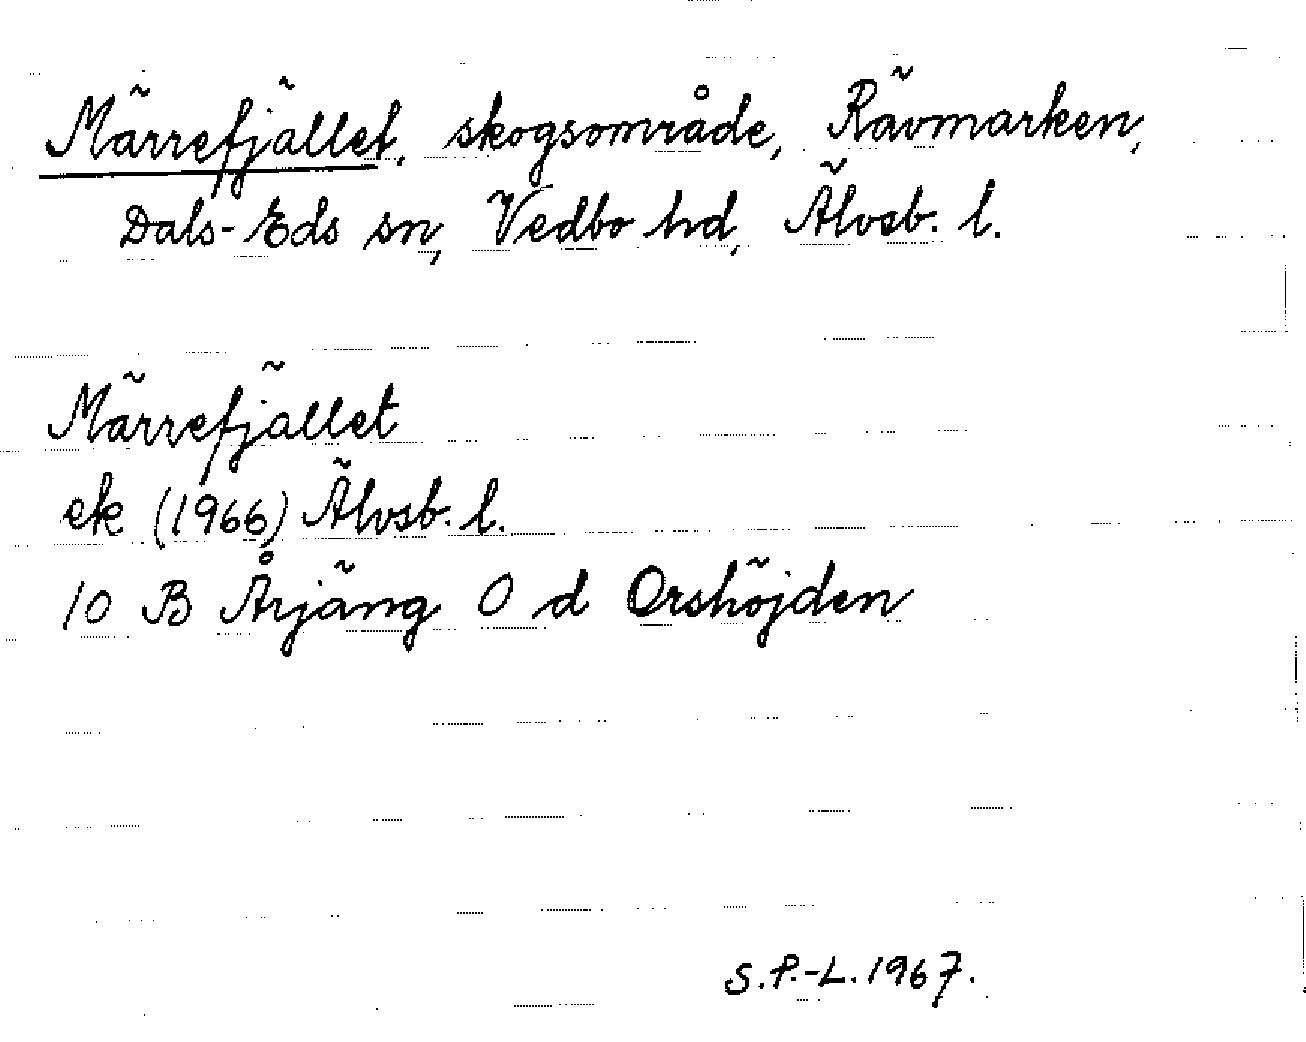 Märrefjället, skogsområde, Rävmarken,
Dals-Eds sn, Vedbo hd, Älvsb. l.
Märrefjället
ek (1966) Älvsb. l.
10 B Årjäng 0 d Orshöjden
S.P.-L. 1967.